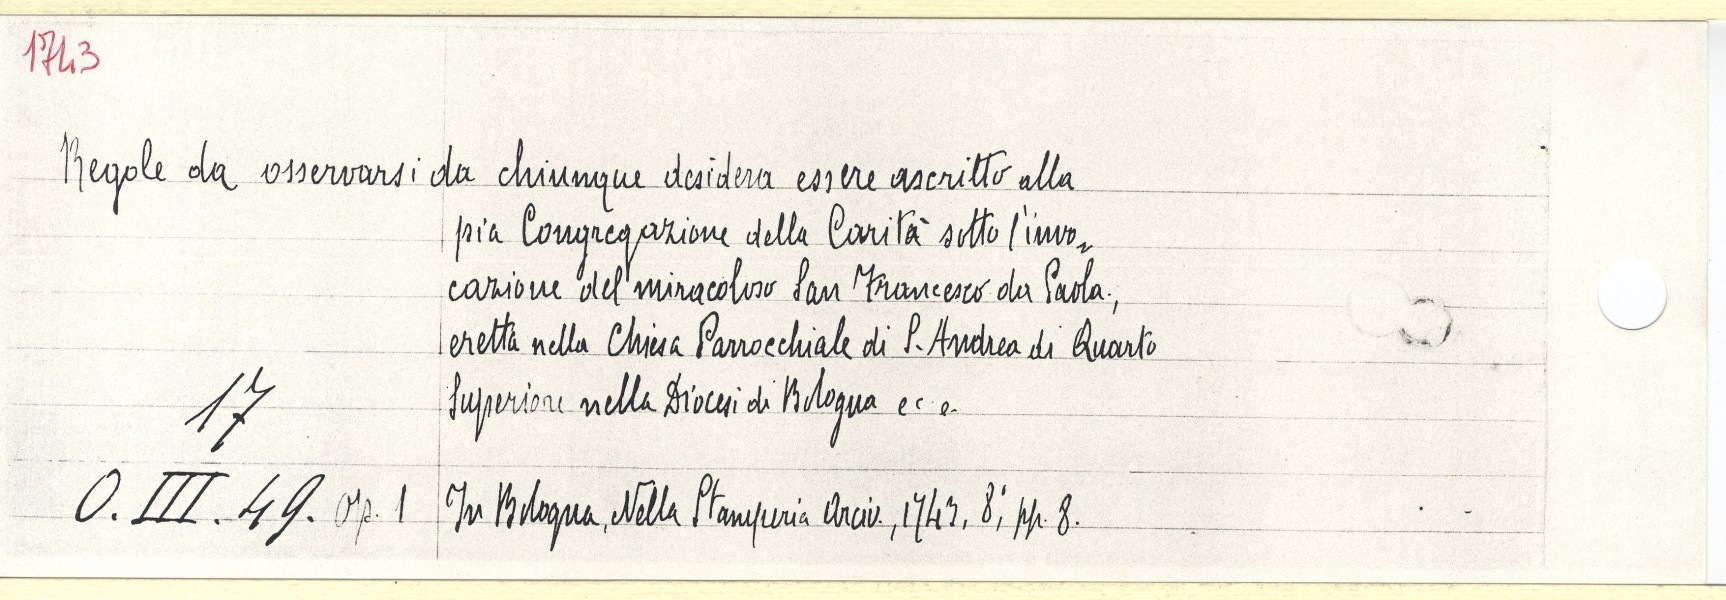 1743
Regole da osservarsi da chiunque desidera essere ascritto alla
pia Congregazione della Carità sotto l'invo=
cazione del miracoloso San Francesco da Paola,
eretta nella Chiesa Parrocchiale di S. Andrea di Quarto
Superiore nella Diocesi di Bologna ecc.
17
O. III. 49. op. 1 In Bologna, Nella Stamperia Arciv., 1743, 8°, pp. 8.